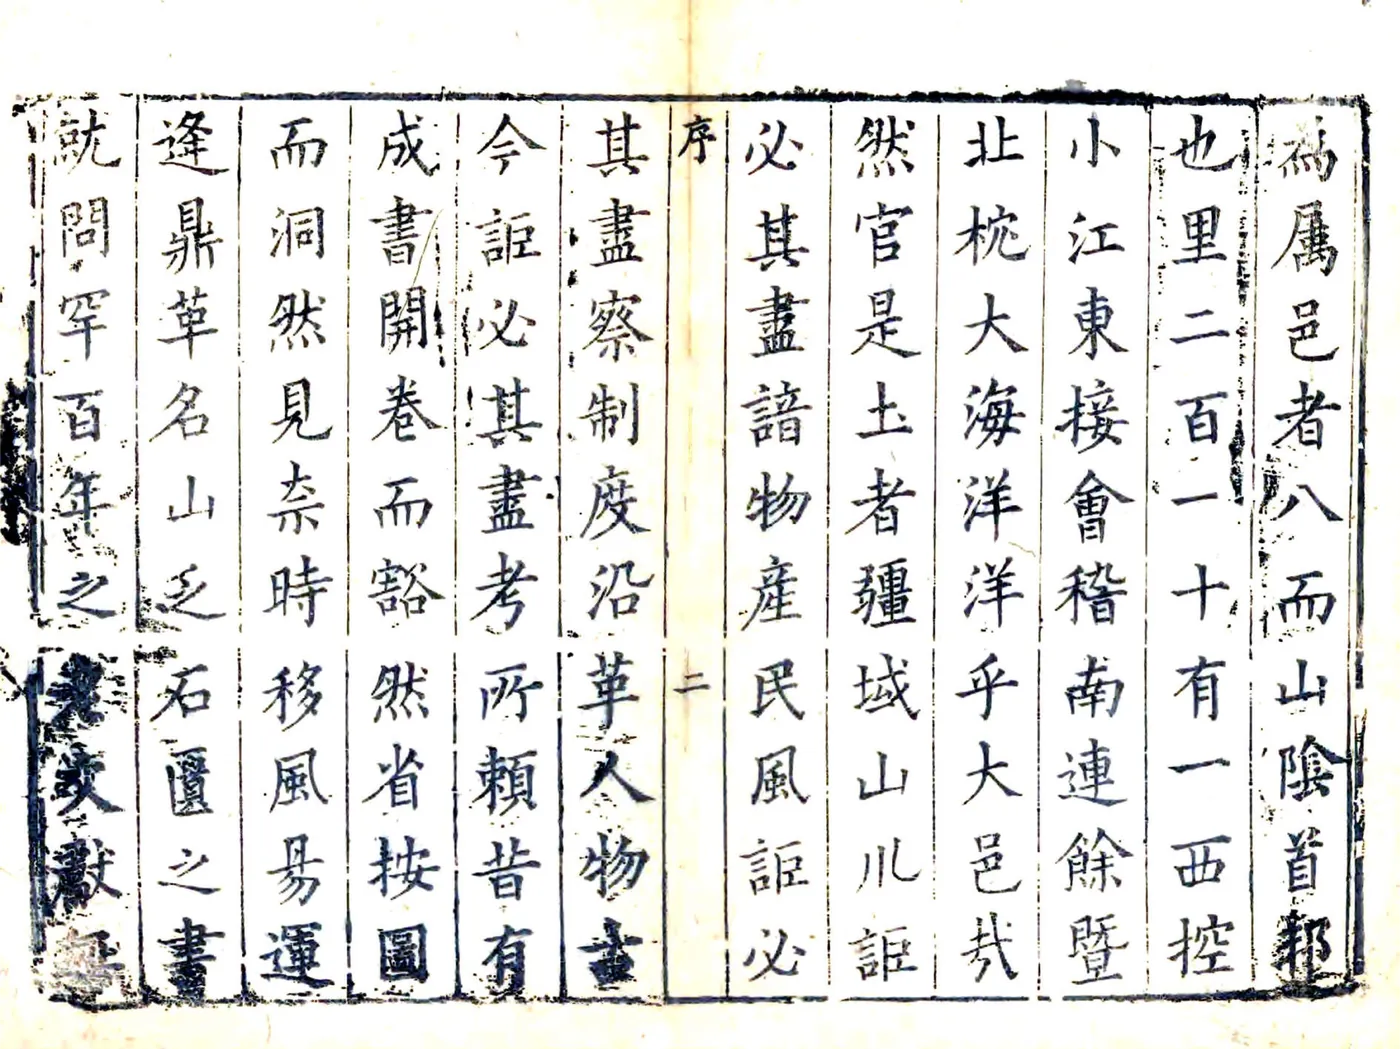 為属邑者八而山陰首邦
也里二百一十有一西控
小江東接會稽南連餘曁
北枕大海洋洋乎大邑㢤
然官是土者疆域山川詎
必其盡諳物產民風詎必
序 二
其盡察制度沿革人物古
今詎必其盡考所頼昔有
成書開卷而豁然省按圖
而洞然見柰時移風昜運
逢鼎革名山乏石匱之書
就問罕百年之老文獻無